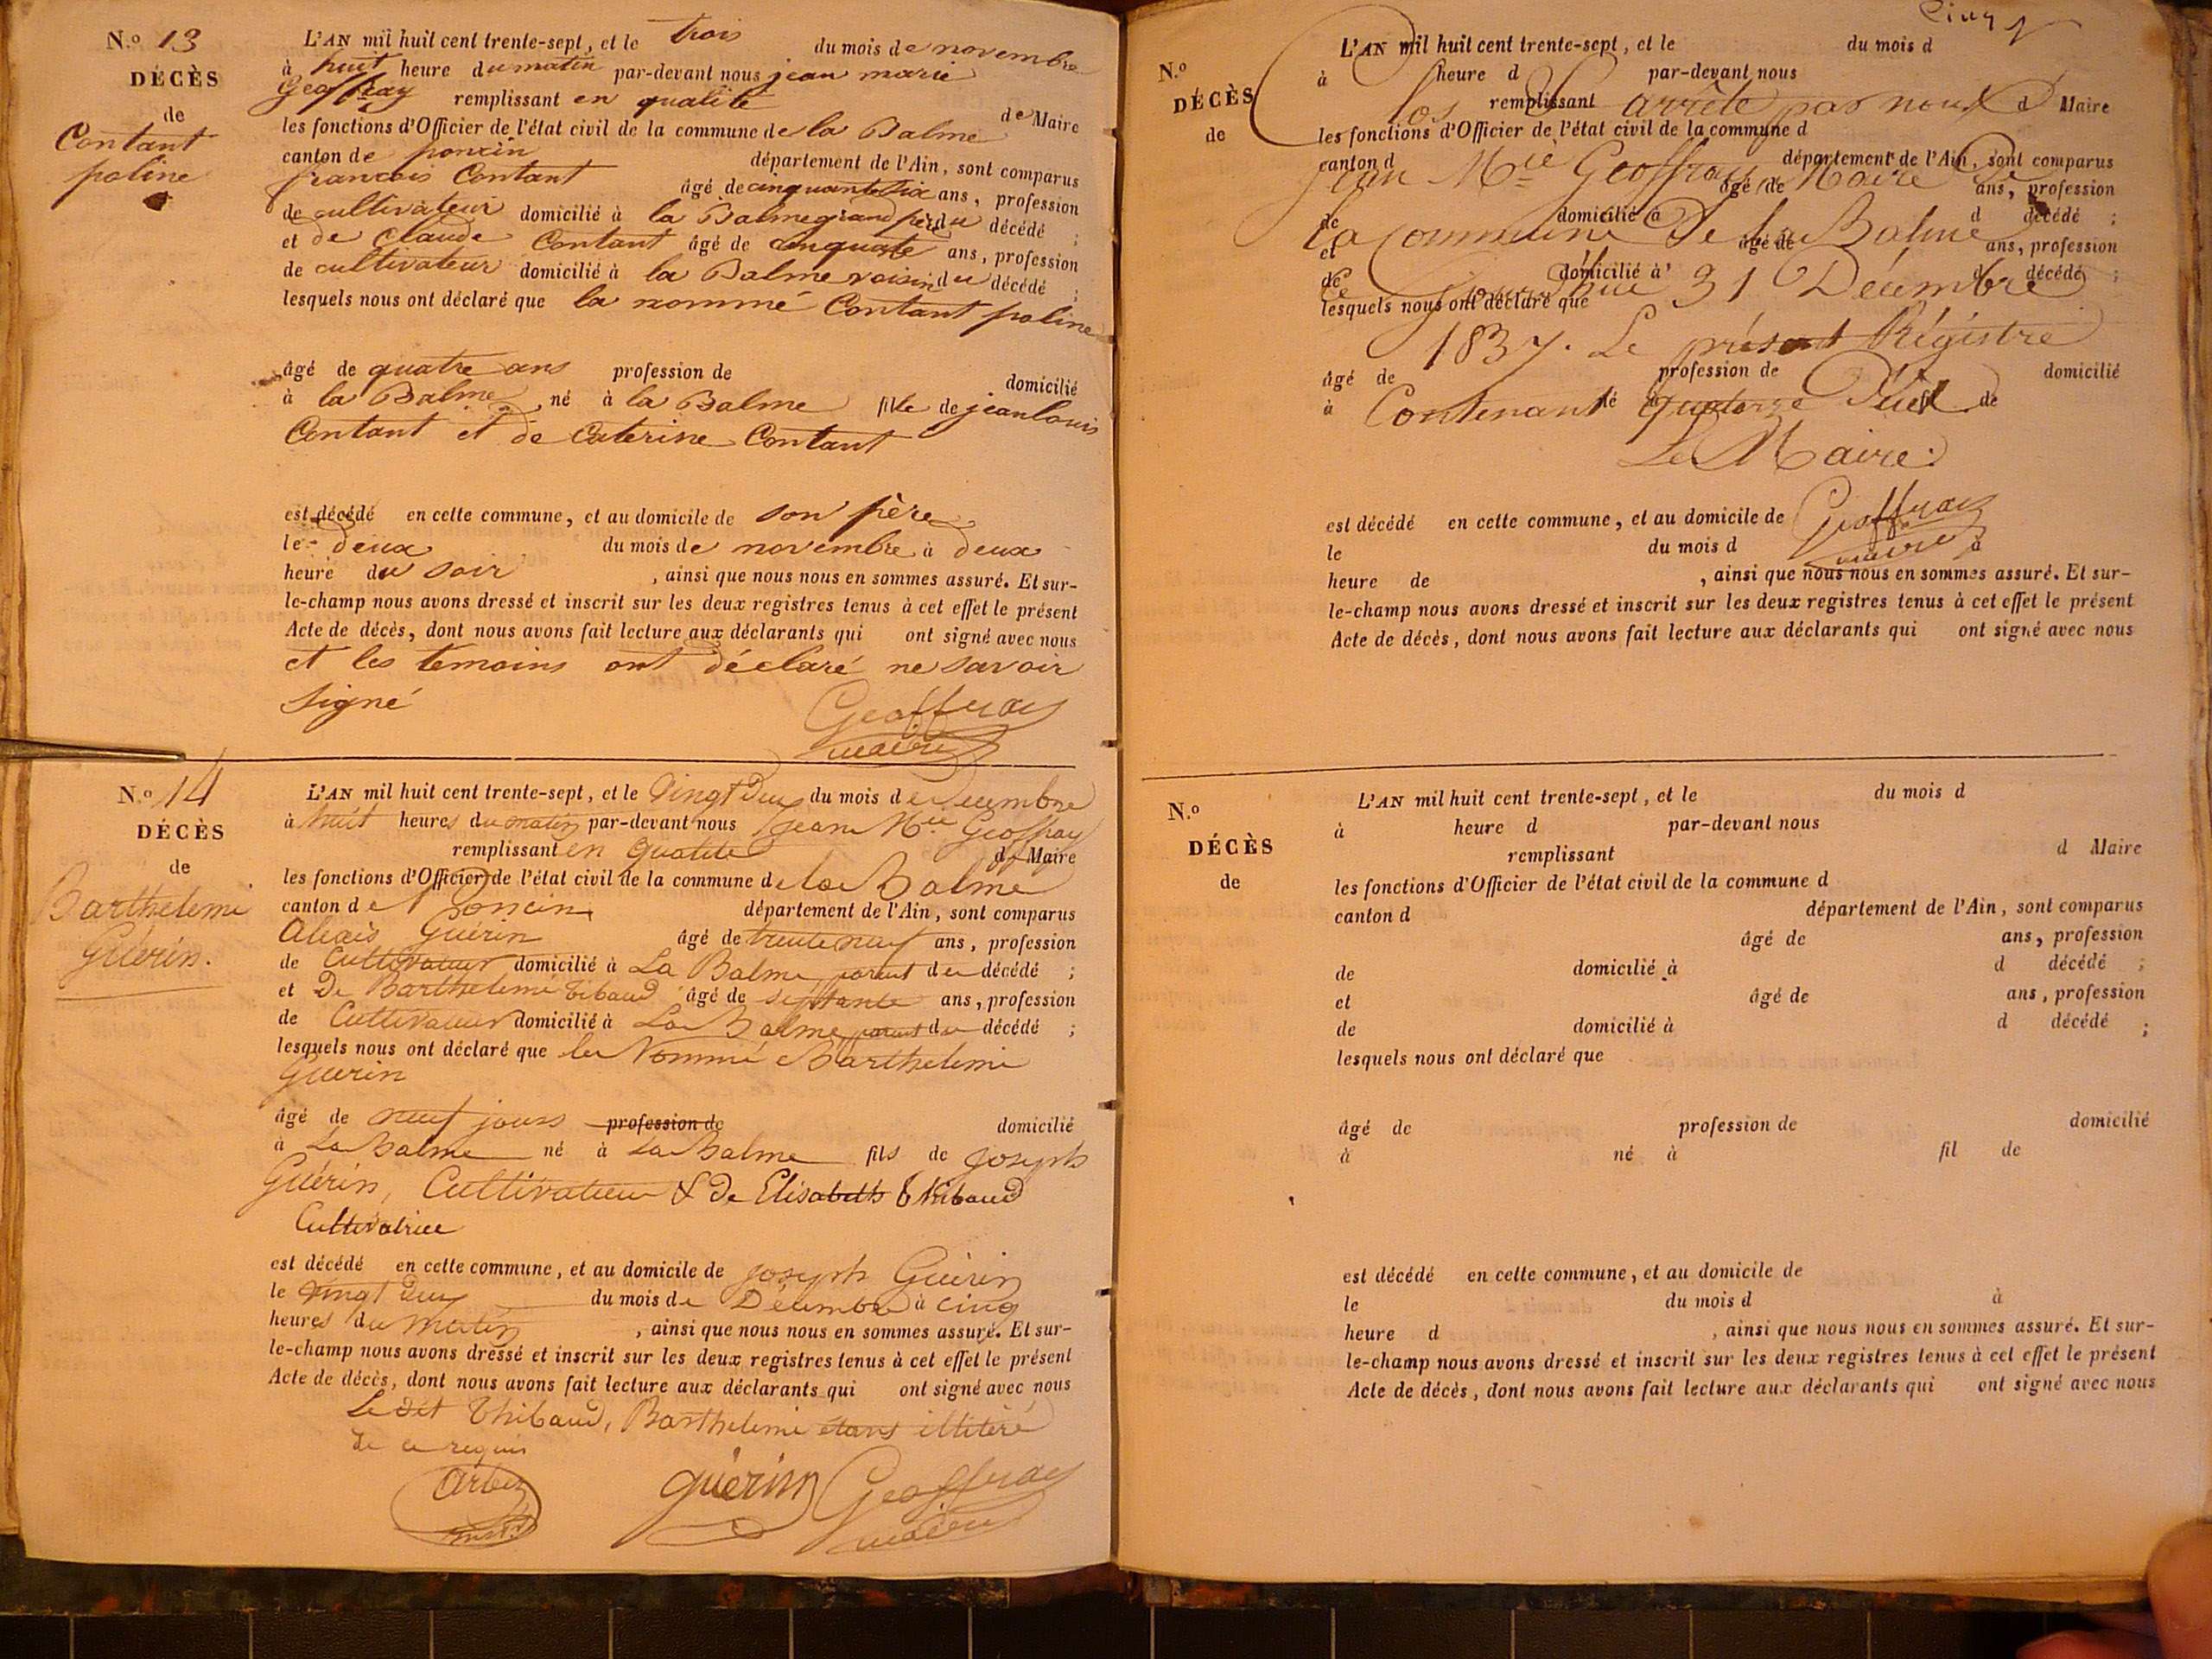 N.o 13
DÉCÈS
de
Contant
poline
L'AN mil huit cent trente-sept, et le trois du mois de novembre
à huit heure du matin par-devant nous jean marie
Geoffray remplissant en qualité de Maire
les fonctions d'Officier de l'état civil de la commune de la Balme
canton de poncin département de l'Ain, sont comparus
francois Contant âgé de cinquante six ans, profession
de cultivateur domicilié à la Balme grand père du décédé ;
et de Claude Contant âgé de cinquate ans, profession
de cultivateur domicilié à la Balme voisin du décédé ;
lesquels nous ont déclaré que la nommé Contant poline
âgé de quatre ans profession de domicilié
à la Balme né à la Balme fille de jean louis
Contant et de Caterine Contant
est décédé en cette commune, et au domicile de son père
le deux du mois de novembre à deux
heure du soir , ainsi que nous nous en sommes assuré. Et sur-
le-champ nous avons dressé et inscrit sur les deux registres tenus à cet effet le présent
Acte de décès, dont nous avons fait lecture aux déclarants qui ont signé avec nous
et les temoins ont déclaré ne savoir
signé
Geoffray
maire
N.o 14
DÉCÈS
de
Barthelemi
Guérin.
L'AN mil huit cent trente-sept, et le Vingt Deux du mois de Decembre
à huit heures du matin par-devant nous Jean Mie Geoffray
remplissant en qualité de Maire
les fonctions d'Officier de l'état civil de la commune de la Balme
canton de Poncin département de l'Ain, sont comparus
Alexis Guérin âgé de trente neuf ans, profession
de Cultivateur domicilié à La Balme, parent du décédé ;
et De Barthelemi Tibaud âgé de septante ans, profession
de Cultivateur domicilié à La Balme parent du décédé ;
lesquels nous ont déclaré que le Nommé Barthelemi
Guerin
âgé de neuf jours profession de domicilié
à La Balme né à La Balme fils de Joseph
Guérin, Cultivateur & De Elisabeth Thibaud
Cultivatrice
est décédé en cette commune, et au domicile de Joseph Guérin
le Vingt Deux du mois de Décembre à cinq
heures du matin , ainsi que nous nous en sommes assuré. Et sur-
le-champ nous avons dressé et inscrit sur les deux registres tenus à cet effet le présent
Acte de décès, dont nous avons fait lecture aux déclarants qui ont signé avec nous
Le dit Thibaud, Barthelemi étant illitéré
de ce requis
guérin Geoffray
maire
N.o
DÉCÈS
de
L'AN mil huit cent trente-sept, et le du mois d
à heure d par-devant nous
remplissant d Maire
Clos & arrêté par nous
les fonctions d'Officier de l'état civil de la commune d
canton d département de l'Ain, sont comparus
Jean Mie Geoffray Maire De
âgé de ans, profession
de domicilié à d décédé ;
la Commune De la Balme
et âgé de ans, profession
de domicilié à d décédé ;
Ce jourd'hui 31 Décembre
lesquels nous ont déclaré que
1837. Le présent Régistre
âgé de profession de domicilié
à né à fil de
Contenant quatorze
Le Maire:
est décédé en cette commune, et au domicile de Geoffray
le du mois d à
maire
heure de , ainsi que nous nous en sommes assuré. Et sur-
le-champ nous avons dressé et inscrit sur les deux registres tenus à cet effet le présent
Acte de décès, dont nous avons fait lecture aux déclarants qui ont signé avec nous
N.o
DÉCÈS
de
L'AN mil huit cent trente-sept, et le du mois d
à heure d par-devant nous
remplissant d Maire
les fonctions d'Officier de l'état civil de la commune d
canton d département de l'Ain, sont comparus
âgé de ans, profession
de domicilié à d décédé ;
et âgé de ans, profession
de domicilié à d décédé ;
lesquels nous ont déclaré que
âgé de profession de domicilié
à né à fil de
est décédé en cette commune, et au domicile de
le du mois d à
heure d , ainsi que nous nous en sommes assuré. Et sur-
le-champ nous avons dressé et inscrit sur les deux registres tenus à cet effet le présent
Acte de décès, dont nous avons fait lecture aux déclarants qui ont signé avec nous